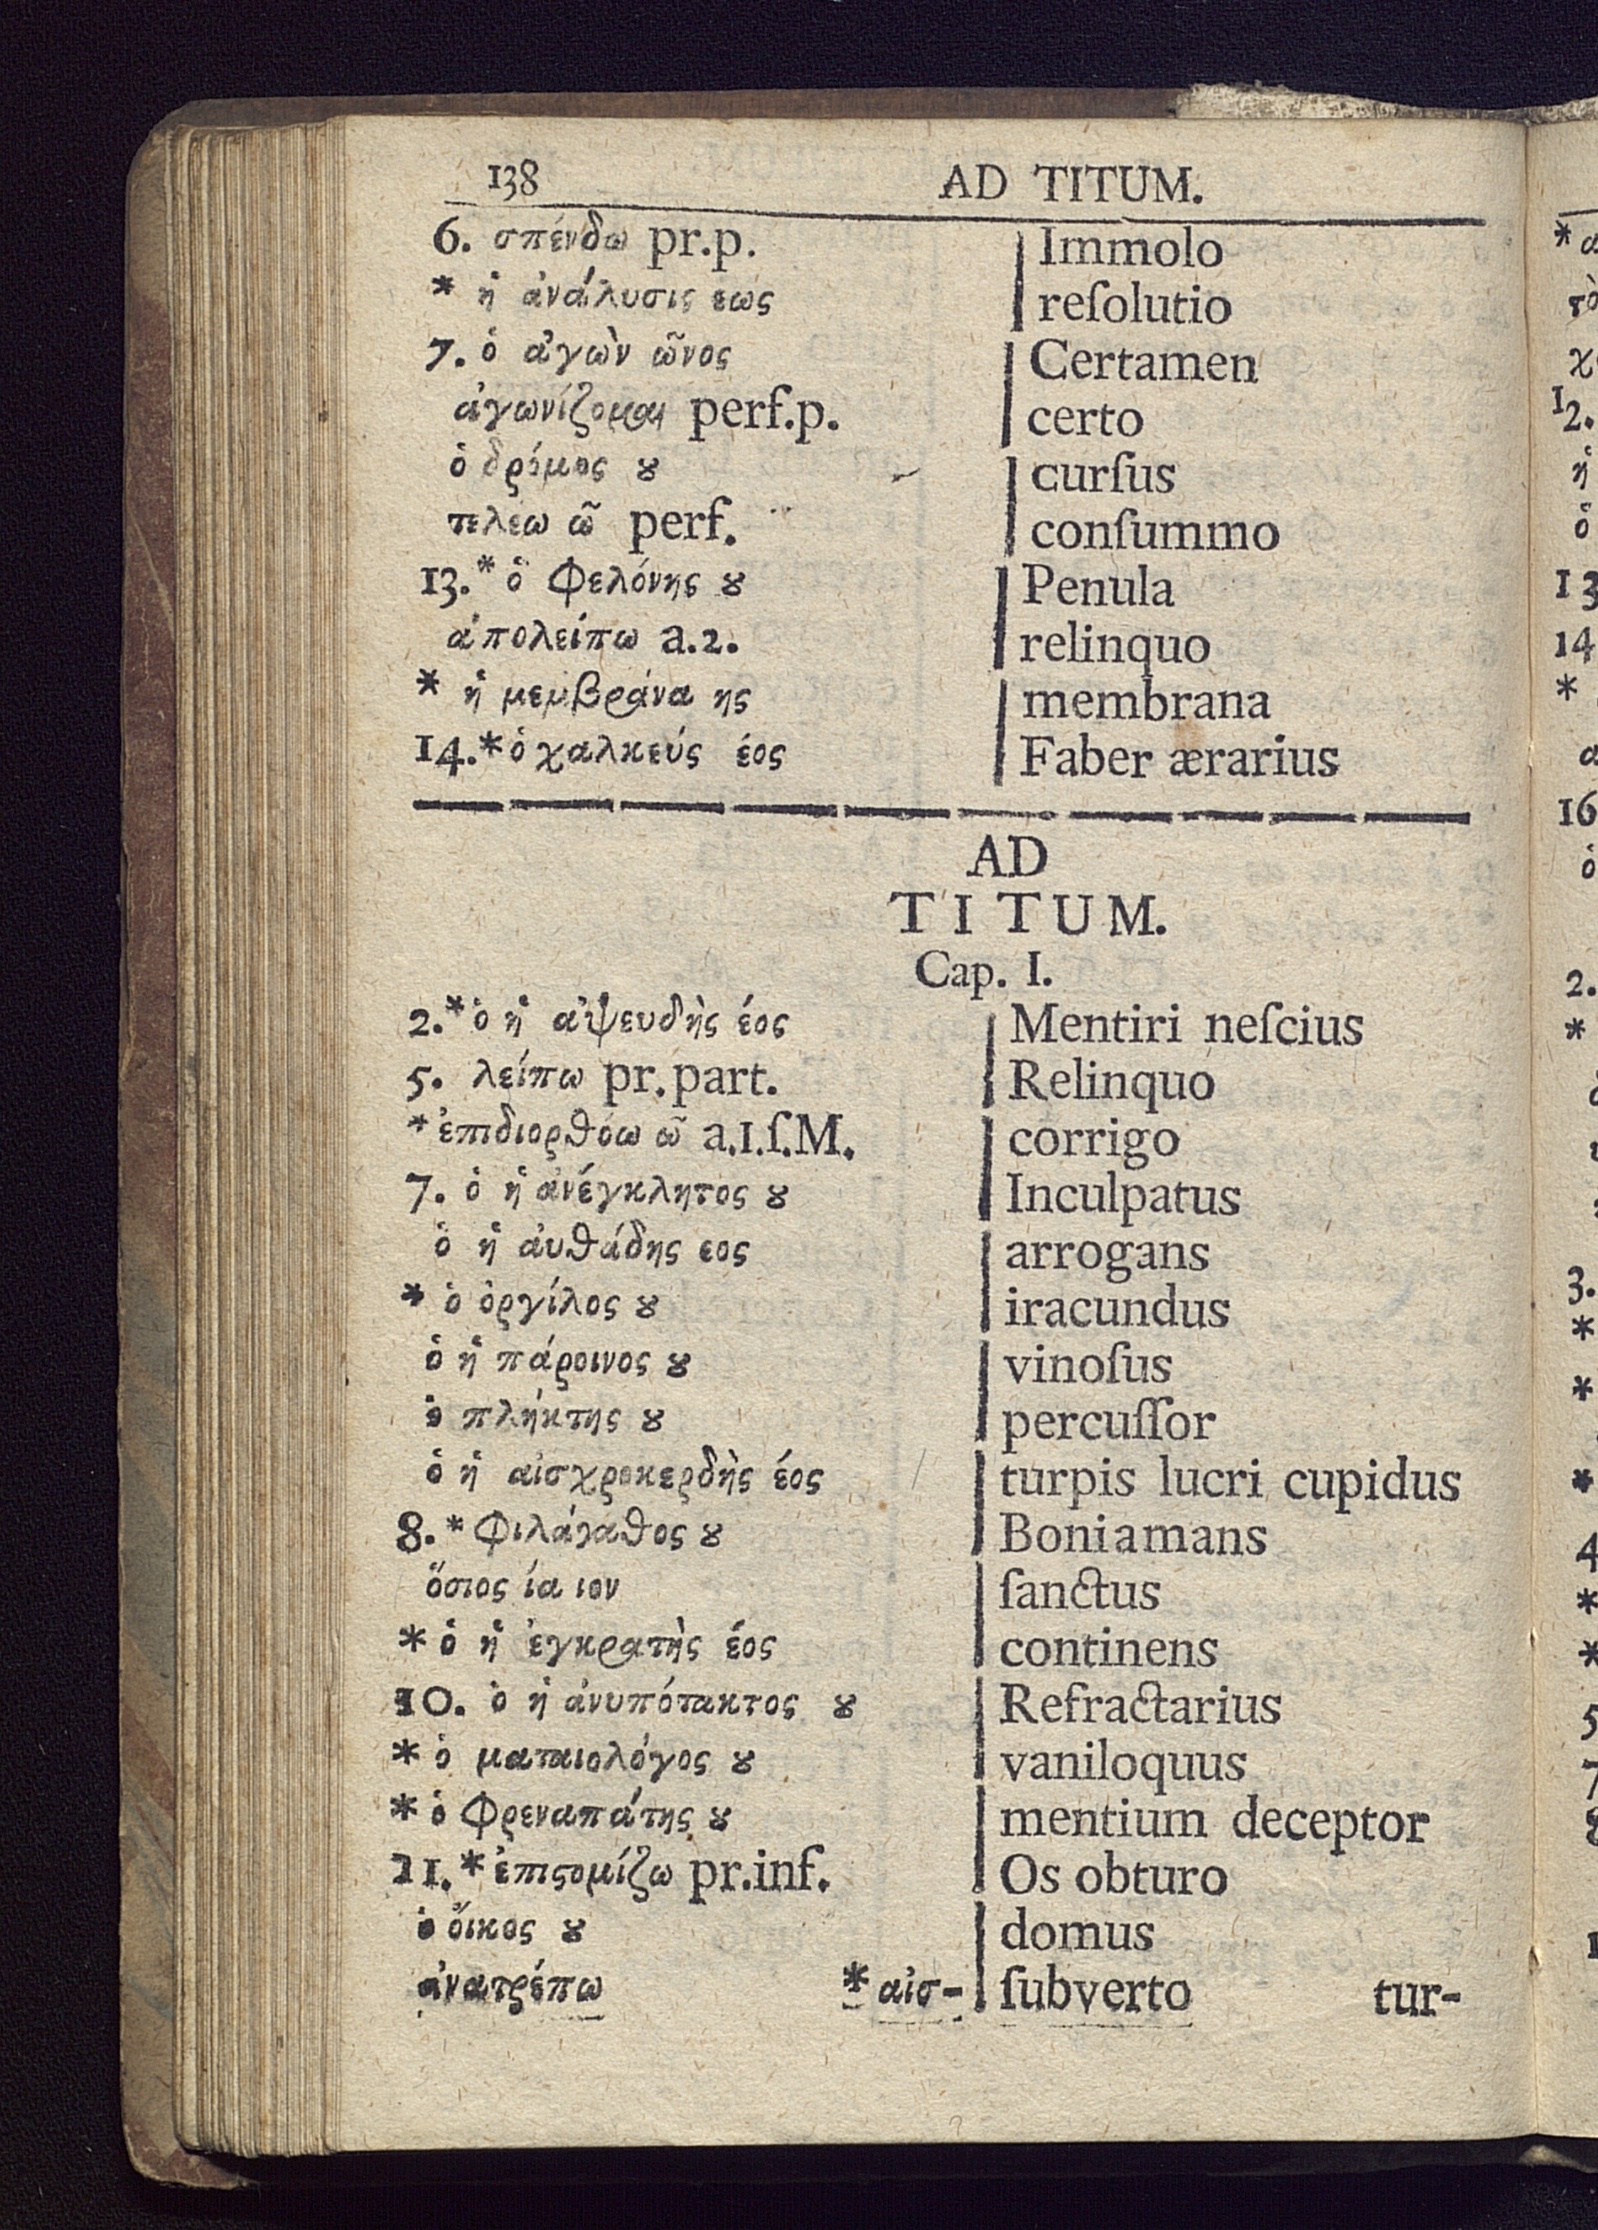 138 AD TITUM.
6. σπένδω pr.p. Immolo
* ἡ ἀνάλυσις εως reſolutio
7. ὁ ἀγὼν ῶνος Certamen
ἀγωνίζομαι perf.p. certo
ὁ δρόμος ȣ curſus
τελεω ῶ perf. conſummo
13.* ὁ Φελόνης ȣ Penula
ἀπολείπω a.2. relinquo
* ἡ μεμβράνα ης membrana
14.* ὁ χαλκεύς έος Faber ærarius
AD
TITUM.
Cap. I.
2.* ὁ ἡ ἀψευδὴς έος Mentiri neſcius
5. λείπω pr.part. Relinquo
* ἐπιδιορθόω ῶ a.1.ſ.M. corrigo
7. ὁ ἡ ἀνέγκλητος ȣ Inculpatus
ὁ ἡ ἀυθάδης εος arrogans
* ὁ ὀργίλος ȣ iracundus
ὁ ἡ πάροινος ȣ vinoſus
ὁ πλήκτης ȣ percuſſor
ὁ ἡ αἰσχροκερδὴς έος turpis lucri cupidus
8. * Φιλάγαθος ȣ Boniamans
ὅσιος ία ιον ſanctus
* ὁ ἡ ἐγκρατὴς έος continens
10. ὁ ἡ ἀνυπότακτος ȣ Refractarius
* ὁ ματαιολόγος ȣ vaniloquus
* ὁ Φρεναπάτης ȣ mentium deceptor
11. * ἐπιϛομίζω pr.inf. Os obturo
ὁ ὅικος ȣ domus
ἀνατρέπω * αἰσ- ſubverto tur-